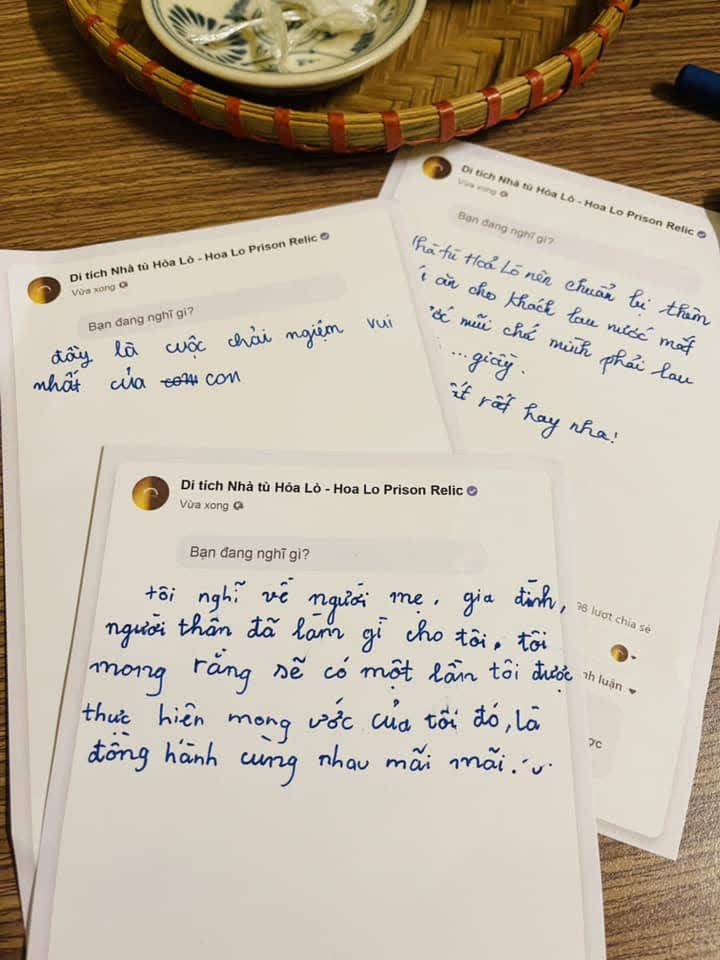 Di tích Nhà tù Hỏa Lò - Hoa Lo Prison Relic
Vừa xong
Bạn đang nghĩ gì?
đây là cuộc chải ngiệm vui
nhất của con con
Di tích Nhà tù Hỏa Lò - Hoa Lo Prison Relic
Vừa xong
Bạn đang nghĩ gì?
nhà tù Hoả Lò nên chuẩn bị thêm
ăn cho khách lau nước mắt
mũi chứ mình phải lau
... giấy.
rất hay nha!
98 lượt chia sẻ
nh luận
ợc
Di tích Nhà tù Hỏa Lò - Hoa Lo Prison Relic
Vừa xong
Bạn đang nghĩ gì?
tôi nghĩ về người mẹ, gia đình,
người thân đã làm gì cho tôi, tôi
mong rằng sẽ có một lần tôi được
thực hiện mong ước của tôi đó, là
đồng hành cùng nhau mãi mãi.